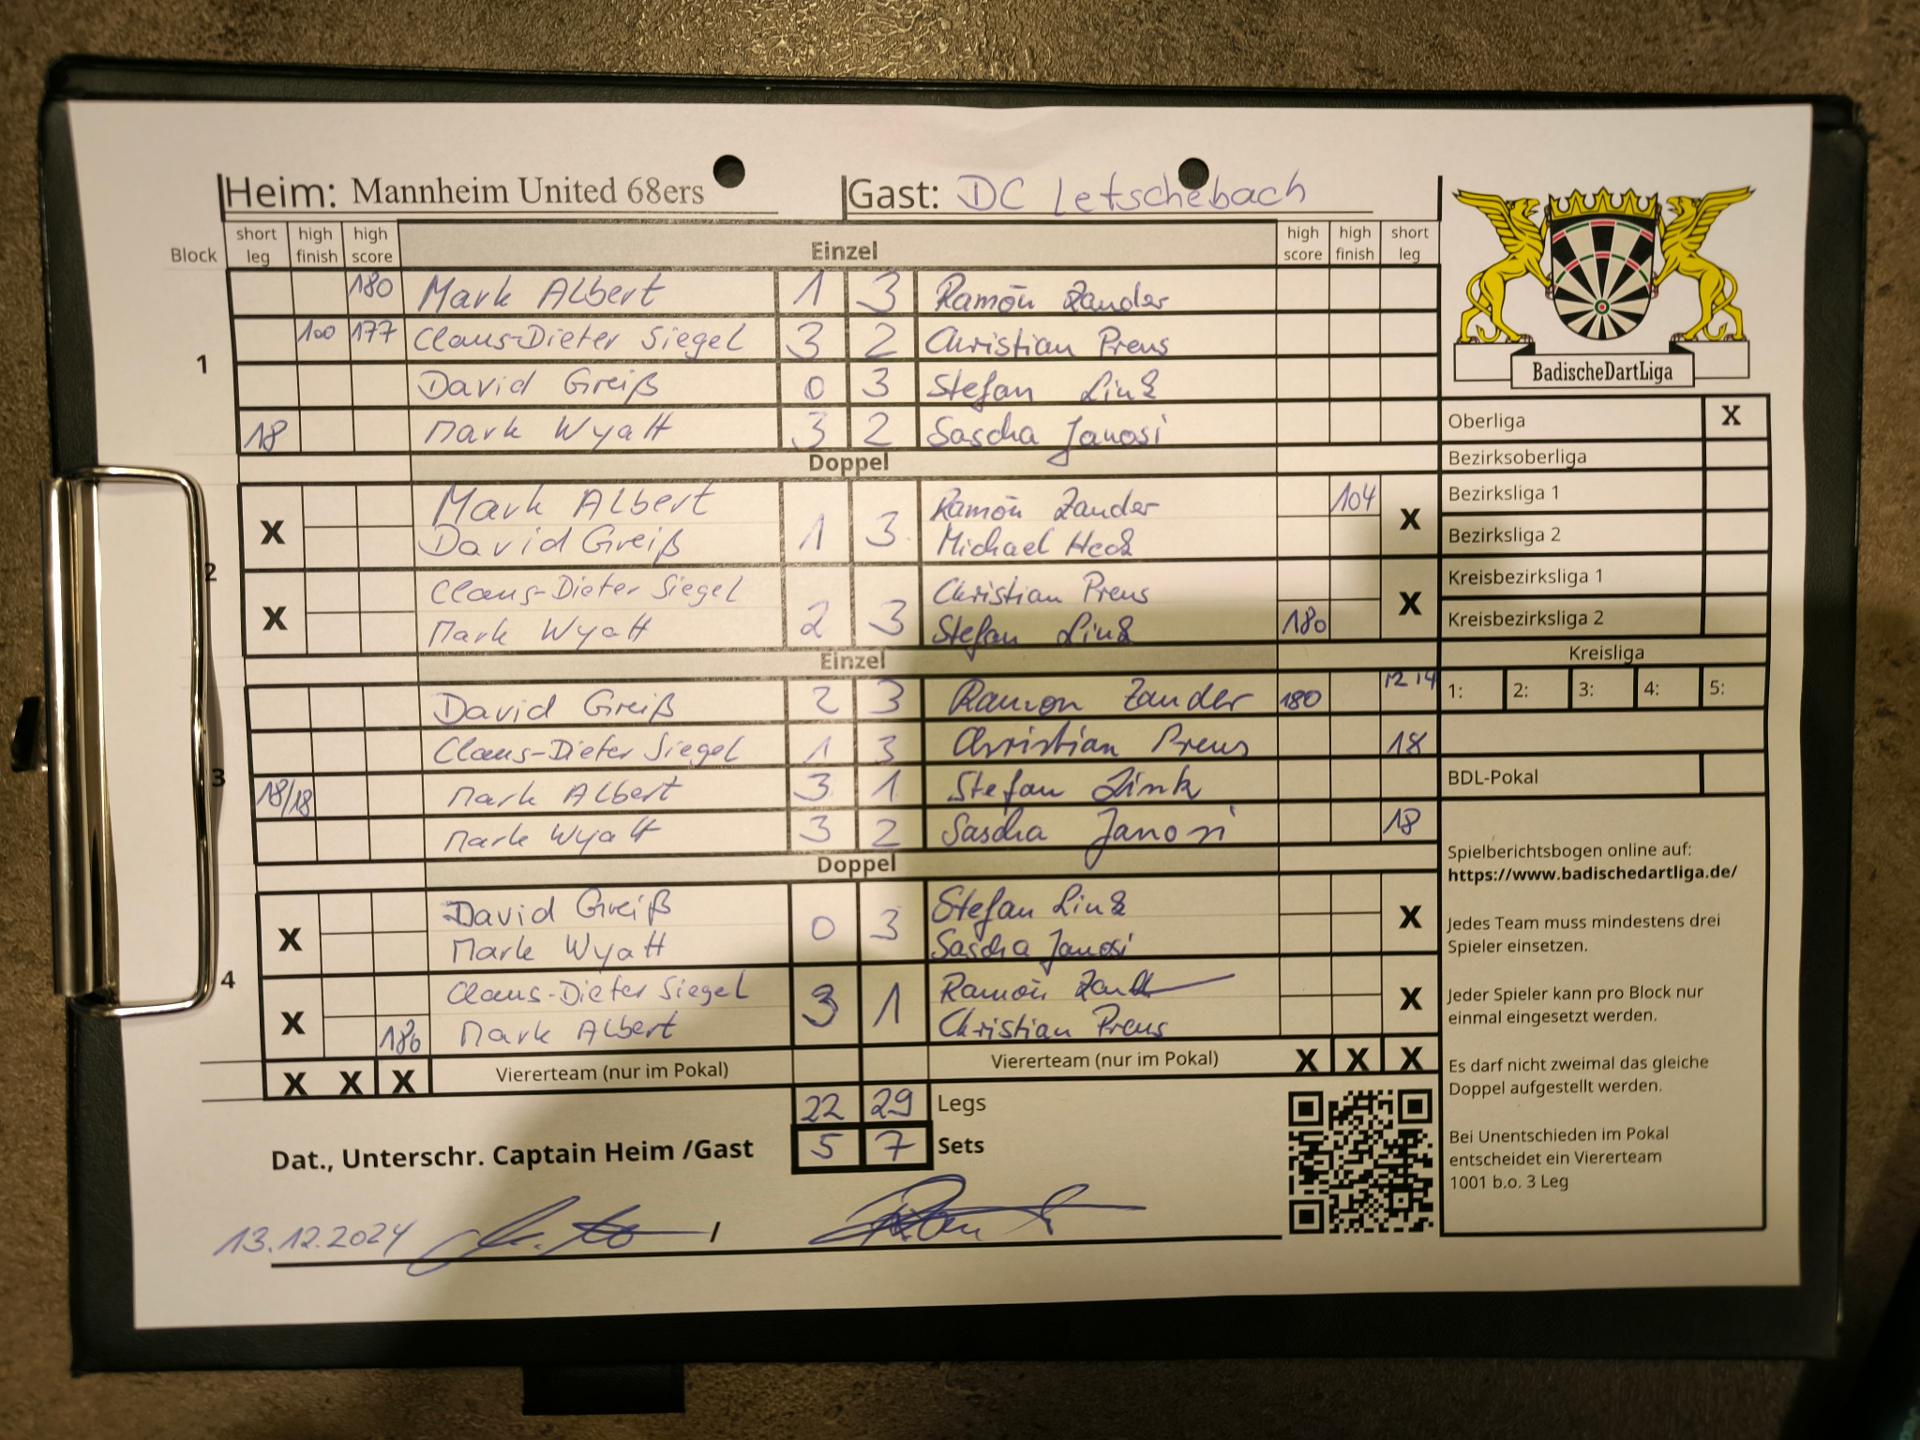 Heim: Mannheim United 68ers Gast: DC Letschebach
Block short leg high finish high score Einzel high score high finish short leg
1
180 Mark Albert 1 3 Ramón Zander
100 177 Claus-Dieter Siegel 3 2 Christian Preus
David Greiß 0 3 Stefan Link
18 Mark Wyatt 3 2 Sascha Janosi
Doppel
2
Mark Albert Ramón Zander 104
X 1 3 X
David Greiß Michael Heck
Claus-Dieter Siegel Christian Preus
X 2 3 X
Mark Wyatt Stefan Link 180
Einzel
3
David Greiß 2 3 Ramon Zander 180 12 14
Claus-Dieter Siegel 1 3 Christian Preus 18
18/18 Mark Albert 3 1 Stefan Link
Mark Wyatt 3 2 Sascha Janosi 18
Doppel
4
David Greiß Stefan Link
X 0 3 X
Mark Wyatt Sascha Janosi
Claus-Dieter Siegel Ramón
X 3 1 X
180 Mark Albert Christian Preus
X X X Viererteam (nur im Pokal) Viererteam (nur im Pokal) X X X
22 29 Legs
5 7 Sets
Dat., Unterschr. Captain Heim /Gast
13.12.2024 /
BadischeDartLiga
Oberliga X
Bezirksoberliga
Bezirksliga 1
Bezirksliga 2
Kreisbezirksliga 1
Kreisbezirksliga 2
Kreisliga
1: 2: 3: 4: 5:
BDL-Pokal
Spielberichtsbogen online auf:
https://www.badischedartliga.de/
Jedes Team muss mindestens drei
Spieler einsetzen.
Jeder Spieler kann pro Block nur
einmal eingesetzt werden.
Es darf nicht zweimal das gleiche
Doppel aufgestellt werden.
Bei Unentschieden im Pokal
entscheidet ein Viererteam
1001 b.o. 3 Leg